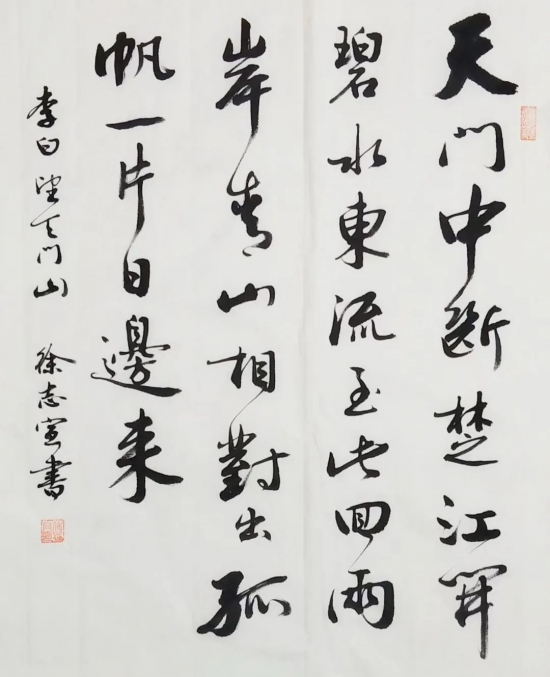 天門中斷楚江開
碧水東流至此回兩
岸青山相對出孤
帆一片日邊来
李白望天門山 徐志書